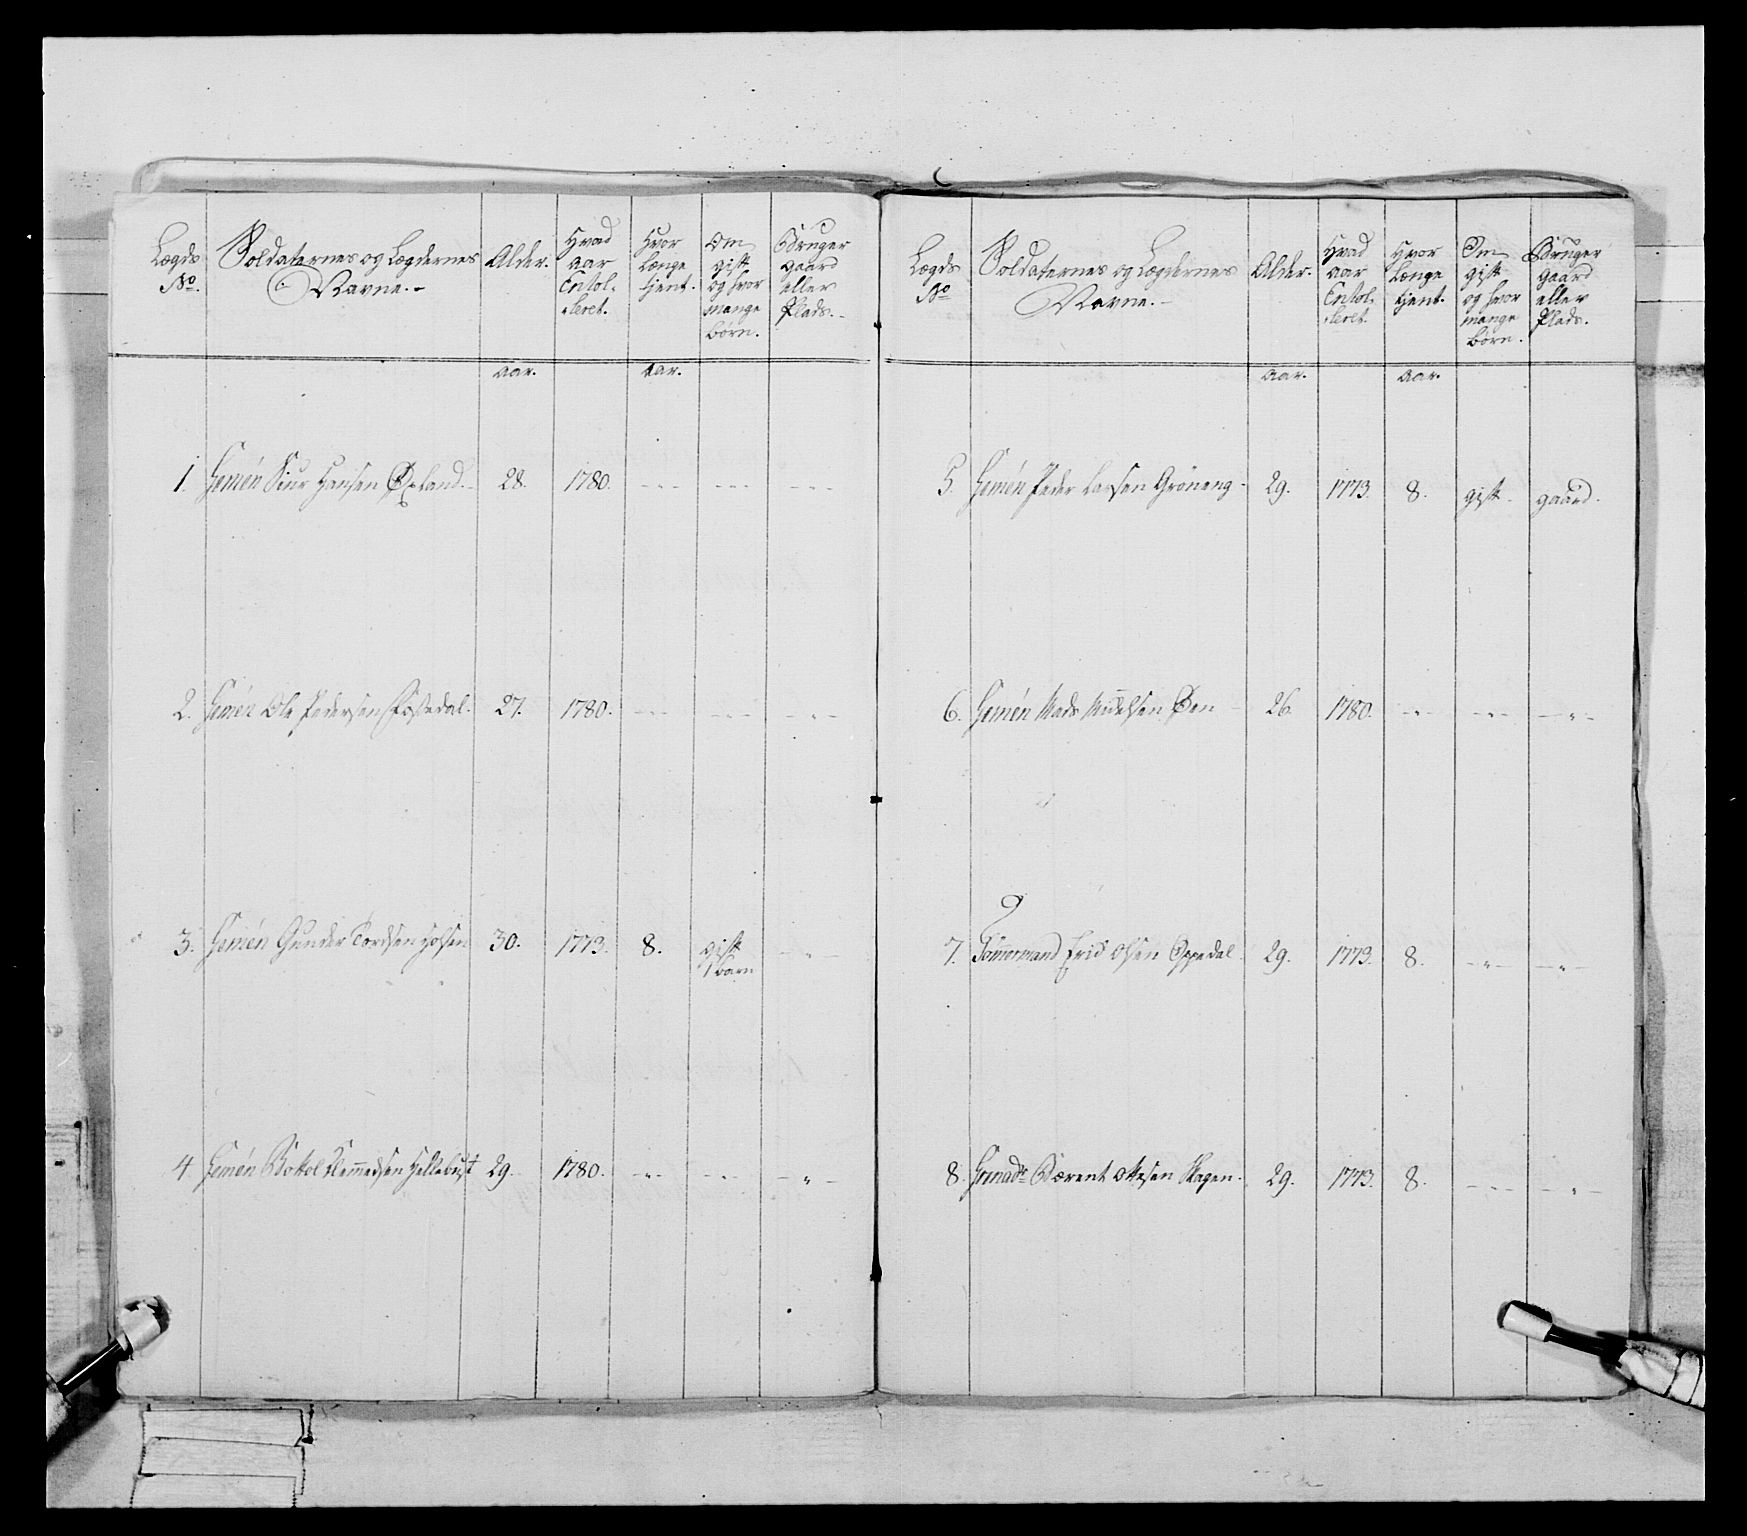 Lægds No. Soldaternes og Lægdernes Navne.- Alder. Hvad aar Enrol-leret. Hvor længe tjent. Om gift og hvor mange børn. Bruger gaard eller Plads.-
aar. aar.
1. Gemén Siur Hansen Øxland.- 28. 1780. -"- -"- -"-
2. Gemén Ole Pedersen Fossedal. 27. 1780. -"- -"- -"-
3. Gemén Gunder Tordsen 30. 1773. 8. gift 1 barn -"-
4 Gemén Botol Clemedsen Hellebust 29. 1780. -"- -"- -"-
Lægds No Soldaternes og Lægdernes Navne.- Alder. Hvad aar Enrol-leret. Hvor længe tjent. Om gift og hvor mange børn. Bruger gaard eller Plads.
aar. aar.
5. Gemén Peder Larsen Gröneng. 29. 1773. 8. gift. gaard.
6. Gemén Mads Michelsen Øen 26. 1780. -"- -"- -"-
7. Tömmermand Erid Olsen Oppedal. 29. 1773. 8. -"- -"-
8. Grenadr Bærent Ottesen Skagen. 29. 1773. 8. -"- -"-